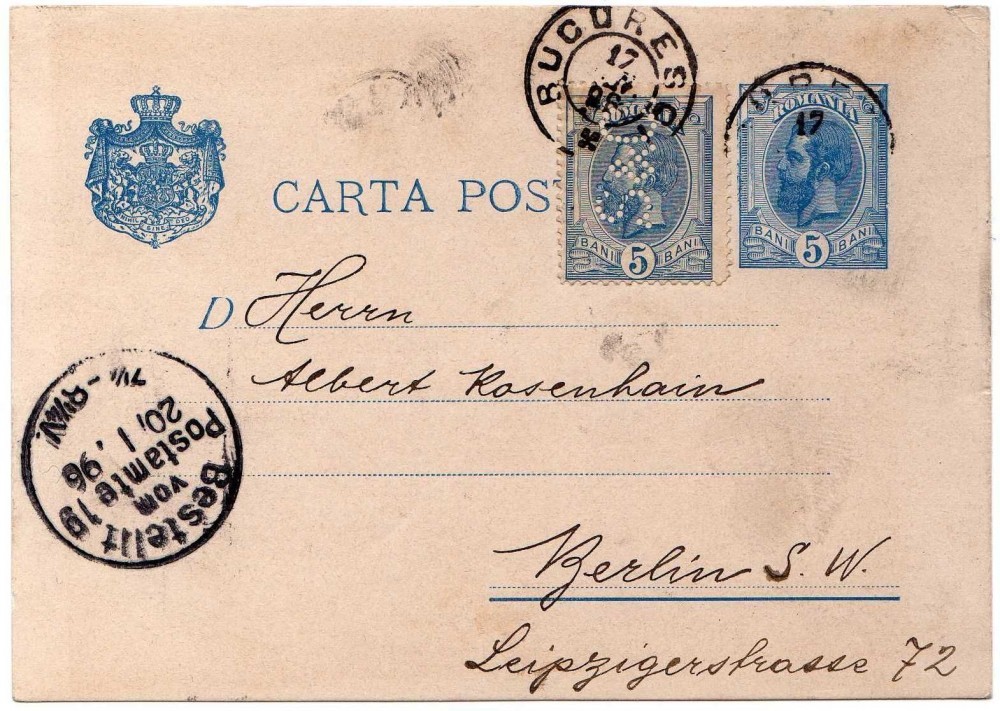 BUCURES
17
17
ROMANIA
NIHIL SINE DEO
CARTA POS
BANI 5 BANI
BANI 5 BANI
D Herrn
Albert Rosenhain
Bestellt
vom
Postamte 19
20, 1, 96
Berlin S. W.
Leipzigerstrasse 72